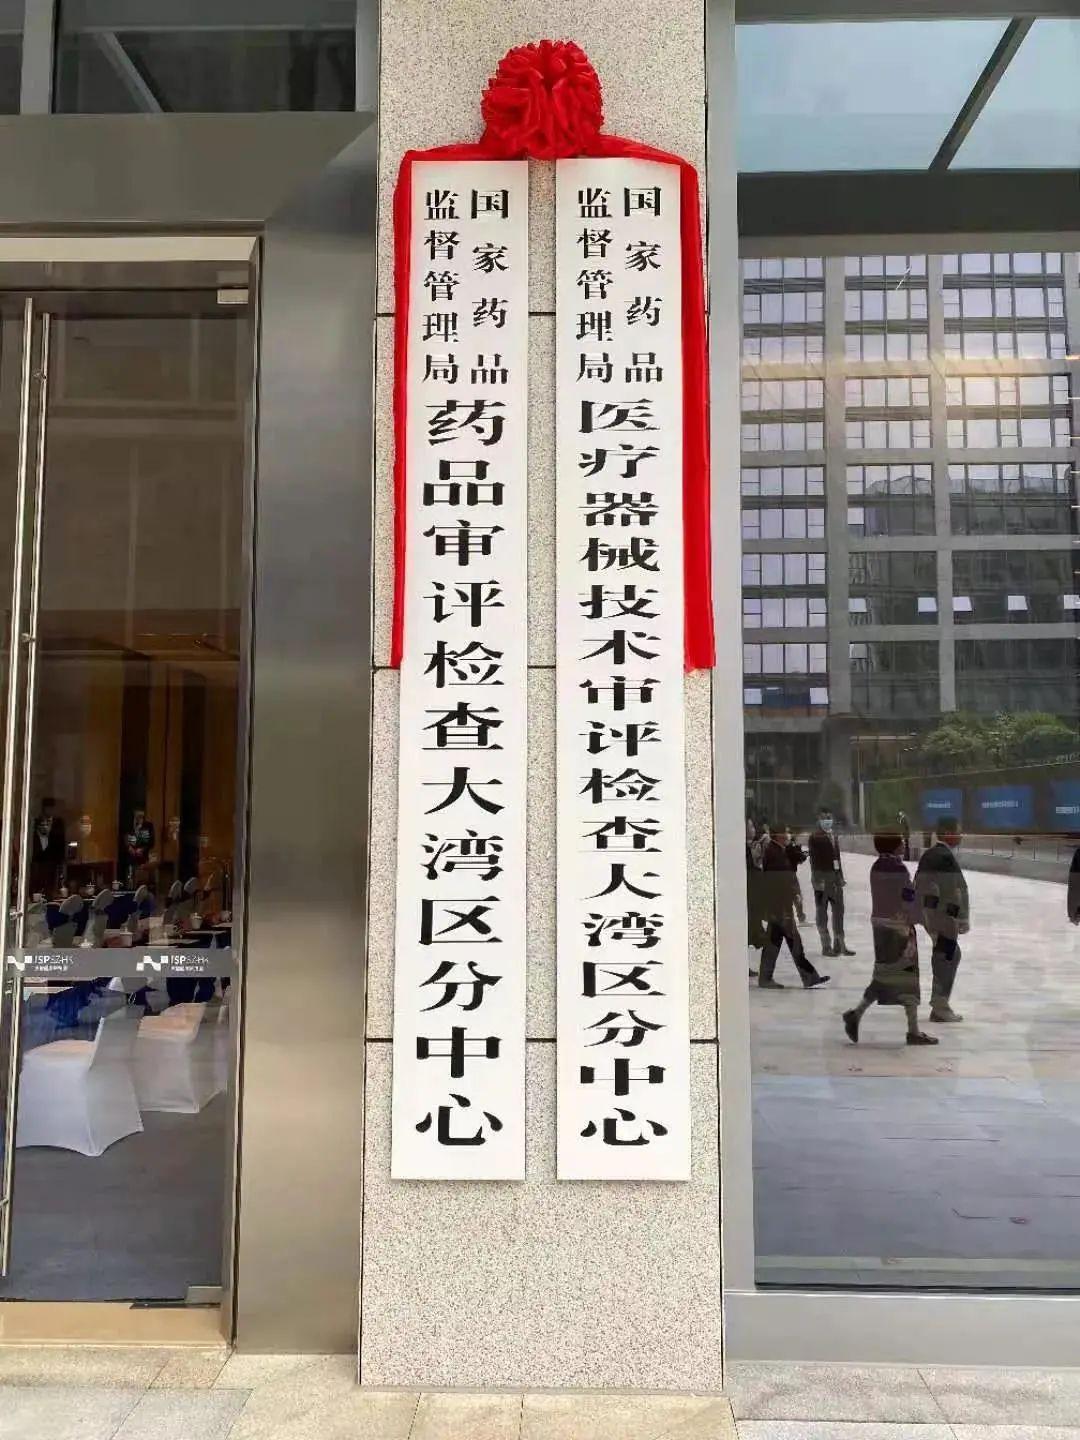 国家药品
监督管理局
药品审评检查大湾区分中心
国家药品
监督管理局
医疗器械技术审评检查大湾区分中心